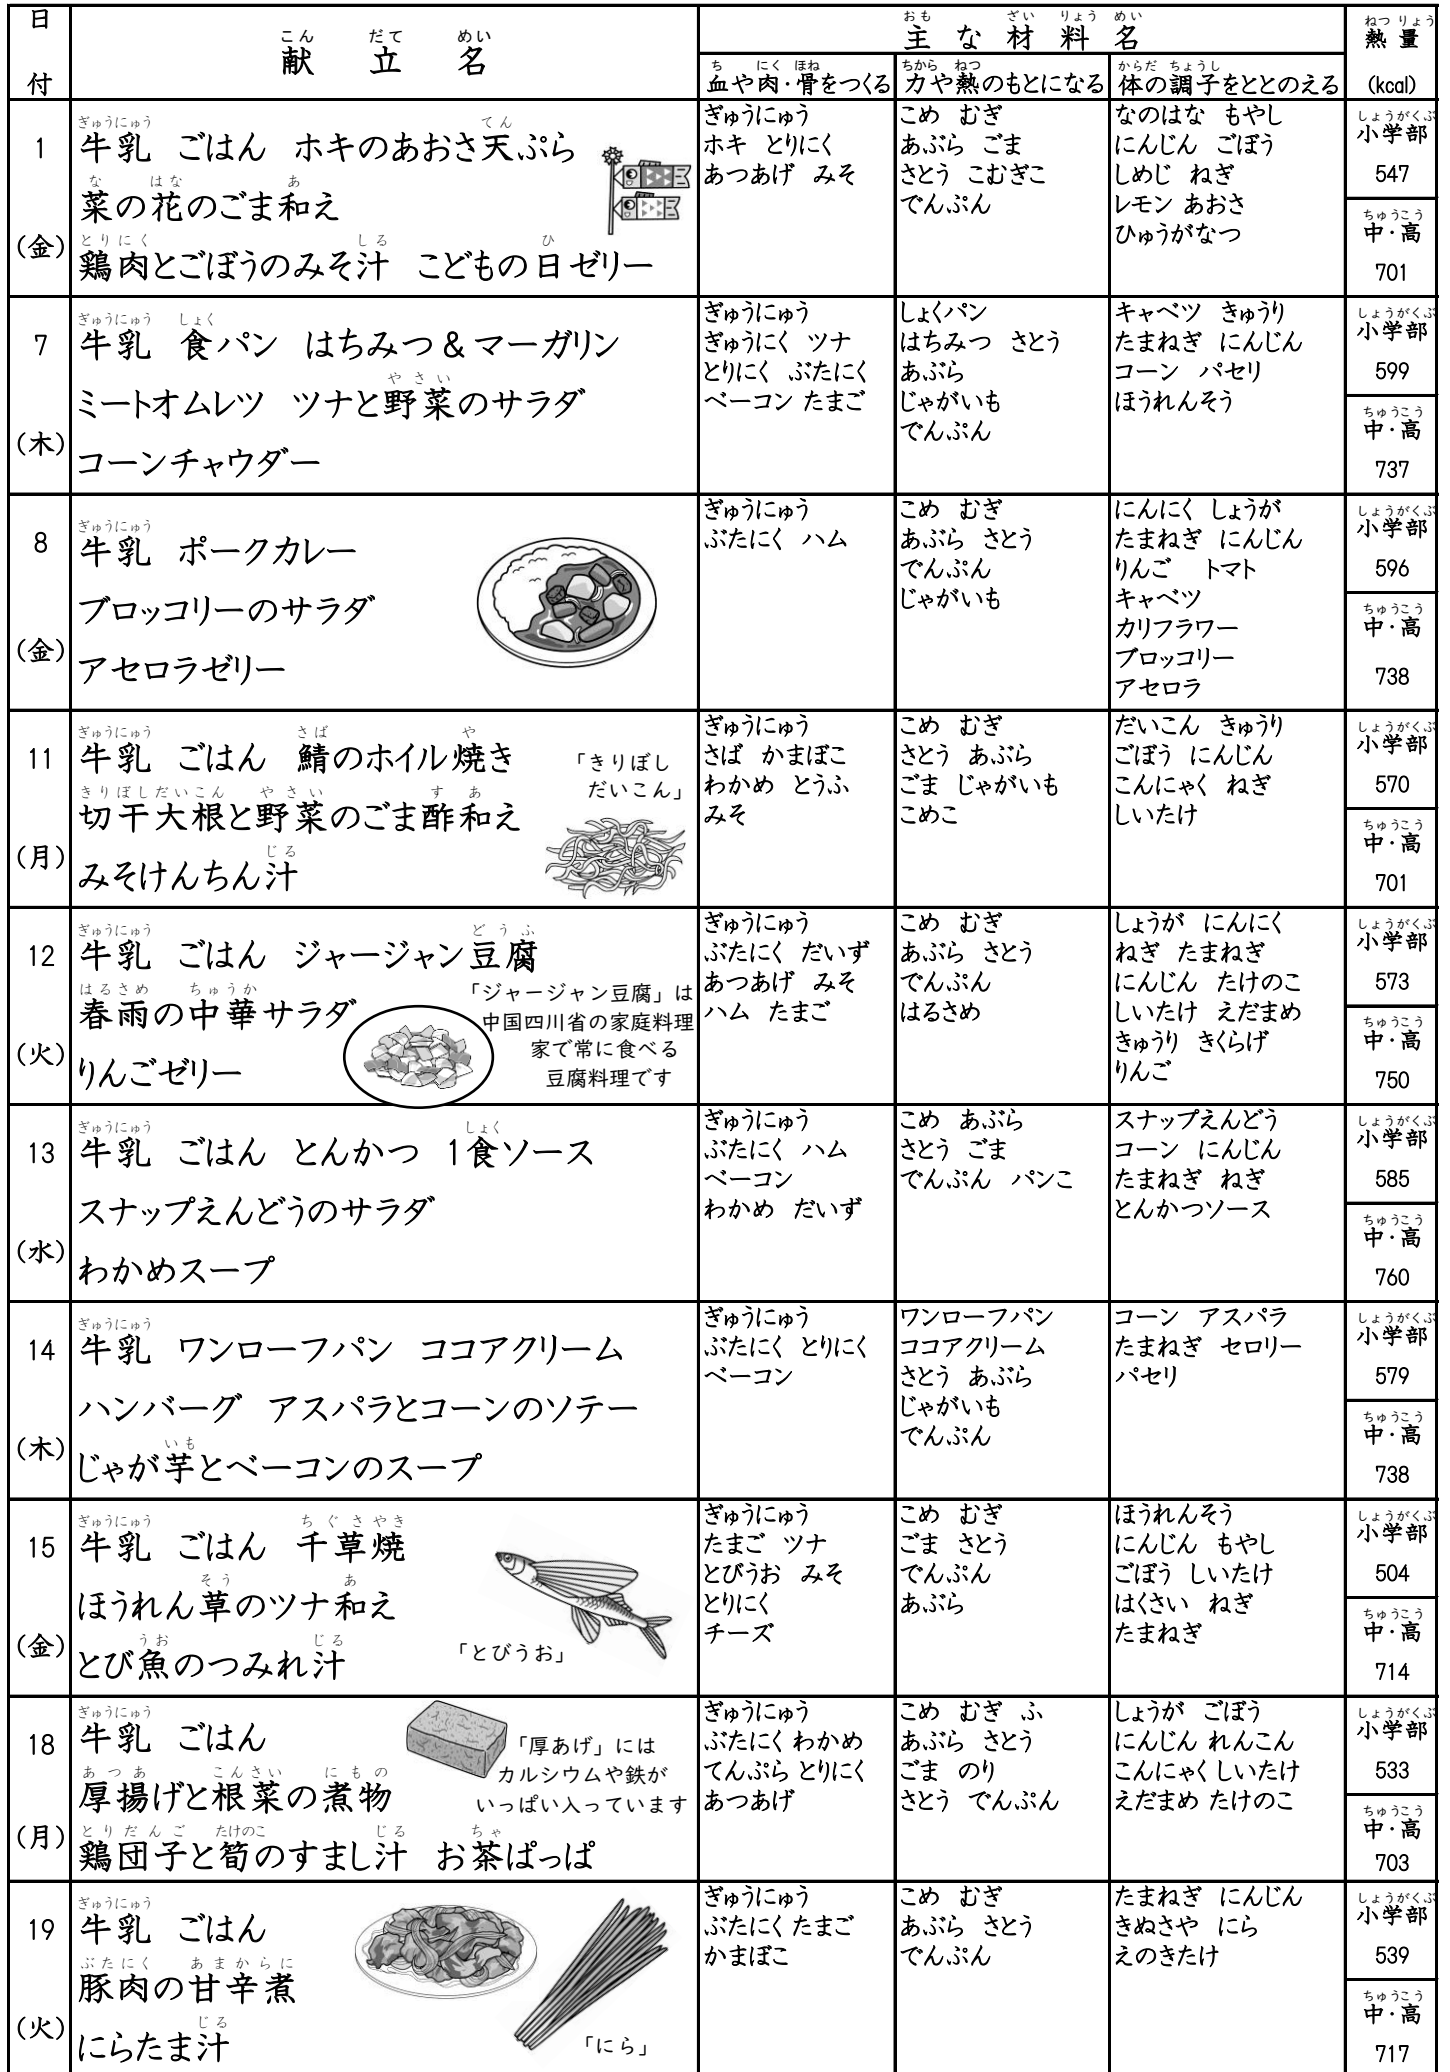 日付
献立名
主な材料名
熱量
(kcal)
血や肉・骨をつくる
力や熱のもとになる
体の調子をととのえる
1
(金)
牛乳 ごはん ホキのあおさ天ぷら
菜の花のごま和え
鶏肉とごぼうのみそ汁 こどもの日ゼリー
ぎゅうにゅう
ホキ とりにく
あつあげ みそ
こめ むぎ
あぶら ごま
さとう こむぎこ
でんぷん
なのはな もやし
にんじん ごぼう
しめじ ねぎ
レモン あおさ
ひゅうがなつ
小学部
547
中・高
701
7
(木)
牛乳 食パン はちみつ&マーガリン
ミートオムレツ ツナと野菜のサラダ
コーンチャウダー
ぎゅうにゅう
ぎゅうにく ツナ
とりにく ぶたにく
ベーコン たまご
しょくパン
はちみつ さとう
あぶら
じゃがいも
でんぷん
キャベツ きゅうり
たまねぎ にんじん
コーン パセリ
ほうれんそう
小学部
599
中・高
737
8
(金)
牛乳 ポークカレー
ブロッコリーのサラダ
アセロラゼリー
ぎゅうにゅう
ぶたにく ハム
こめ むぎ
あぶら さとう
でんぷん
じゃがいも
にんにく しょうが
たまねぎ にんじん
りんご トマト
キャベツ
カリフラワー
ブロッコリー
アセロラ
小学部
596
中・高
738
11
(月)
牛乳 ごはん 鯖のホイル焼き
切干大根と野菜のごま酢和え
みそけんちん汁
「きりぼし
だいこん」
ぎゅうにゅう
さば かまぼこ
わかめ とうふ
みそ
こめ むぎ
さとう あぶら
ごま じゃがいも
こめこ
だいこん きゅうり
ごぼう にんじん
こんにゃく ねぎ
しいたけ
小学部
570
中・高
701
12
(火)
牛乳 ごはん ジャージャン豆腐
春雨の中華サラダ
りんごゼリー
「ジャージャン豆腐」は
中国四川省の家庭料理
家で常に食べる
豆腐料理です
ぎゅうにゅう
ぶたにく だいず
あつあげ みそ
ハム たまご
こめ むぎ
あぶら さとう
でんぷん
はるさめ
しょうが にんにく
ねぎ たまねぎ
にんじん たけのこ
しいたけ えだまめ
きゅうり きくらげ
りんご
小学部
573
中・高
750
13
(水)
牛乳 ごはん とんかつ 1食ソース
スナップえんどうのサラダ
わかめスープ
ぎゅうにゅう
ぶたにく ハム
ベーコン
わかめ だいず
こめ あぶら
さとう ごま
でんぷん パンこ
スナップえんどう
コーン にんじん
たまねぎ ねぎ
とんかつソース
小学部
585
中・高
760
14
(木)
牛乳 ワンローフパン ココアクリーム
ハンバーグ アスパラとコーンのソテー
じゃが芋とベーコンのスープ
ぎゅうにゅう
ぶたにく とりにく
ベーコン
ワンローフパン
ココアクリーム
さとう あぶら
じゃがいも
でんぷん
コーン アスパラ
たまねぎ セロリー
パセリ
小学部
579
中・高
738
15
(金)
牛乳 ごはん 千草焼
ほうれん草のツナ和え
とび魚のつみれ汁
「とびうお」
ぎゅうにゅう
たまご ツナ
とびうお みそ
とりにく
チーズ
こめ むぎ
ごま さとう
でんぷん
あぶら
ほうれんそう
にんじん もやし
ごぼう しいたけ
はくさい ねぎ
たまねぎ
小学部
504
中・高
714
18
(月)
牛乳 ごはん
厚揚げと根菜の煮物
鶏団子と筍のすまし汁 お茶ぱっぱ
「厚あげ」には
カルシウムや鉄が
いっぱい入っています
ぎゅうにゅう
ぶたにく わかめ
てんぷら とりにく
あつあげ
こめ むぎ ふ
あぶら さとう
ごま のり
さとう でんぷん
しょうが ごぼう
にんじん れんこん
こんにゃく しいたけ
えだまめ たけのこ
小学部
533
中・高
703
19
(火)
牛乳 ごはん
豚肉の甘辛煮
にらたま汁
「にら」
ぎゅうにゅう
ぶたにく たまご
かまぼこ
こめ むぎ
あぶら さとう
でんぷん
たまねぎ にんじん
きぬさや にら
えのきたけ
小学部
539
中・高
717